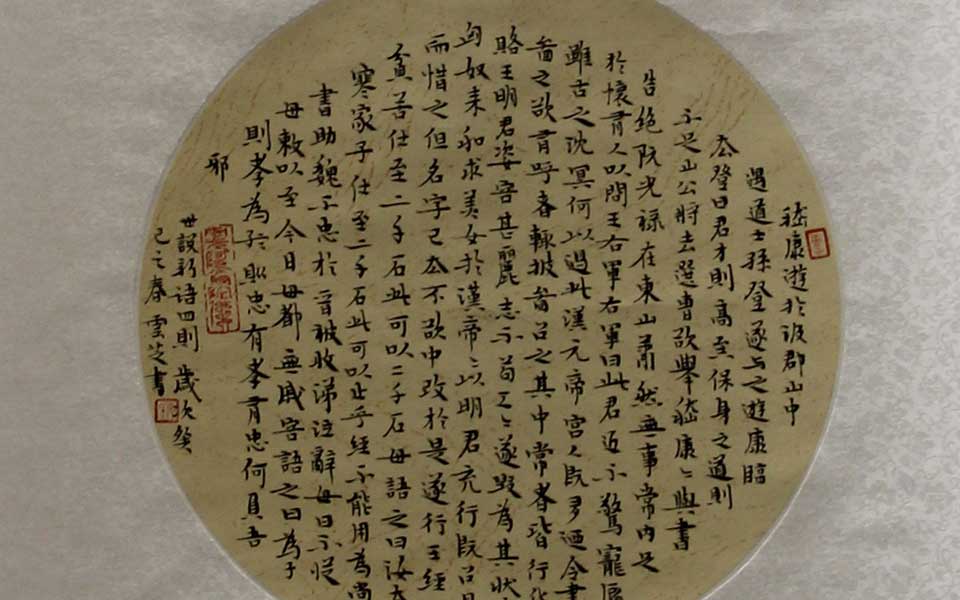 嵇康遊於汲郡山中
遇道士孫登遂与之遊康臨
去登曰君才則高矣保身之道則
不足山公將去選曹欲舉嵇康〻與書
告絕阮光祿在東山蕭然無事常内足
於懷有人以問王右軍右軍曰此君近不驚寵辱
雖古之沈冥何以過此漢元帝宮人既多廼令畫
圖之欲有呼者輒披圖召之其中常者皆行貨
賂王明君姿容甚麗志不苟工〻遂毀為其狀
匈奴来和求美女於漢帝〻以明君充行既召見
而惜之但名字已去不欲中改於是遂行王經
貧苦仕至二千石此可以二千石母語之曰汝本
寒家子仕至二千石此可以止乎經不能用為尚
書助魏不忠於晉被收涕泣辭母曰不從
母敕以至今日母都無慼容語之曰為子
則孝為於忠有孝有忠何負吾
邪
世說新語四則 歲次癸
己之春 雲芝書